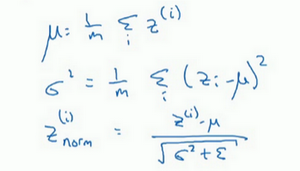 μ = 1/m Σ_i z^(i)
σ² = 1/m Σ_i (z_i - μ)²
z_norm^(i) = (z^(i) - μ) / √(σ² + ε)